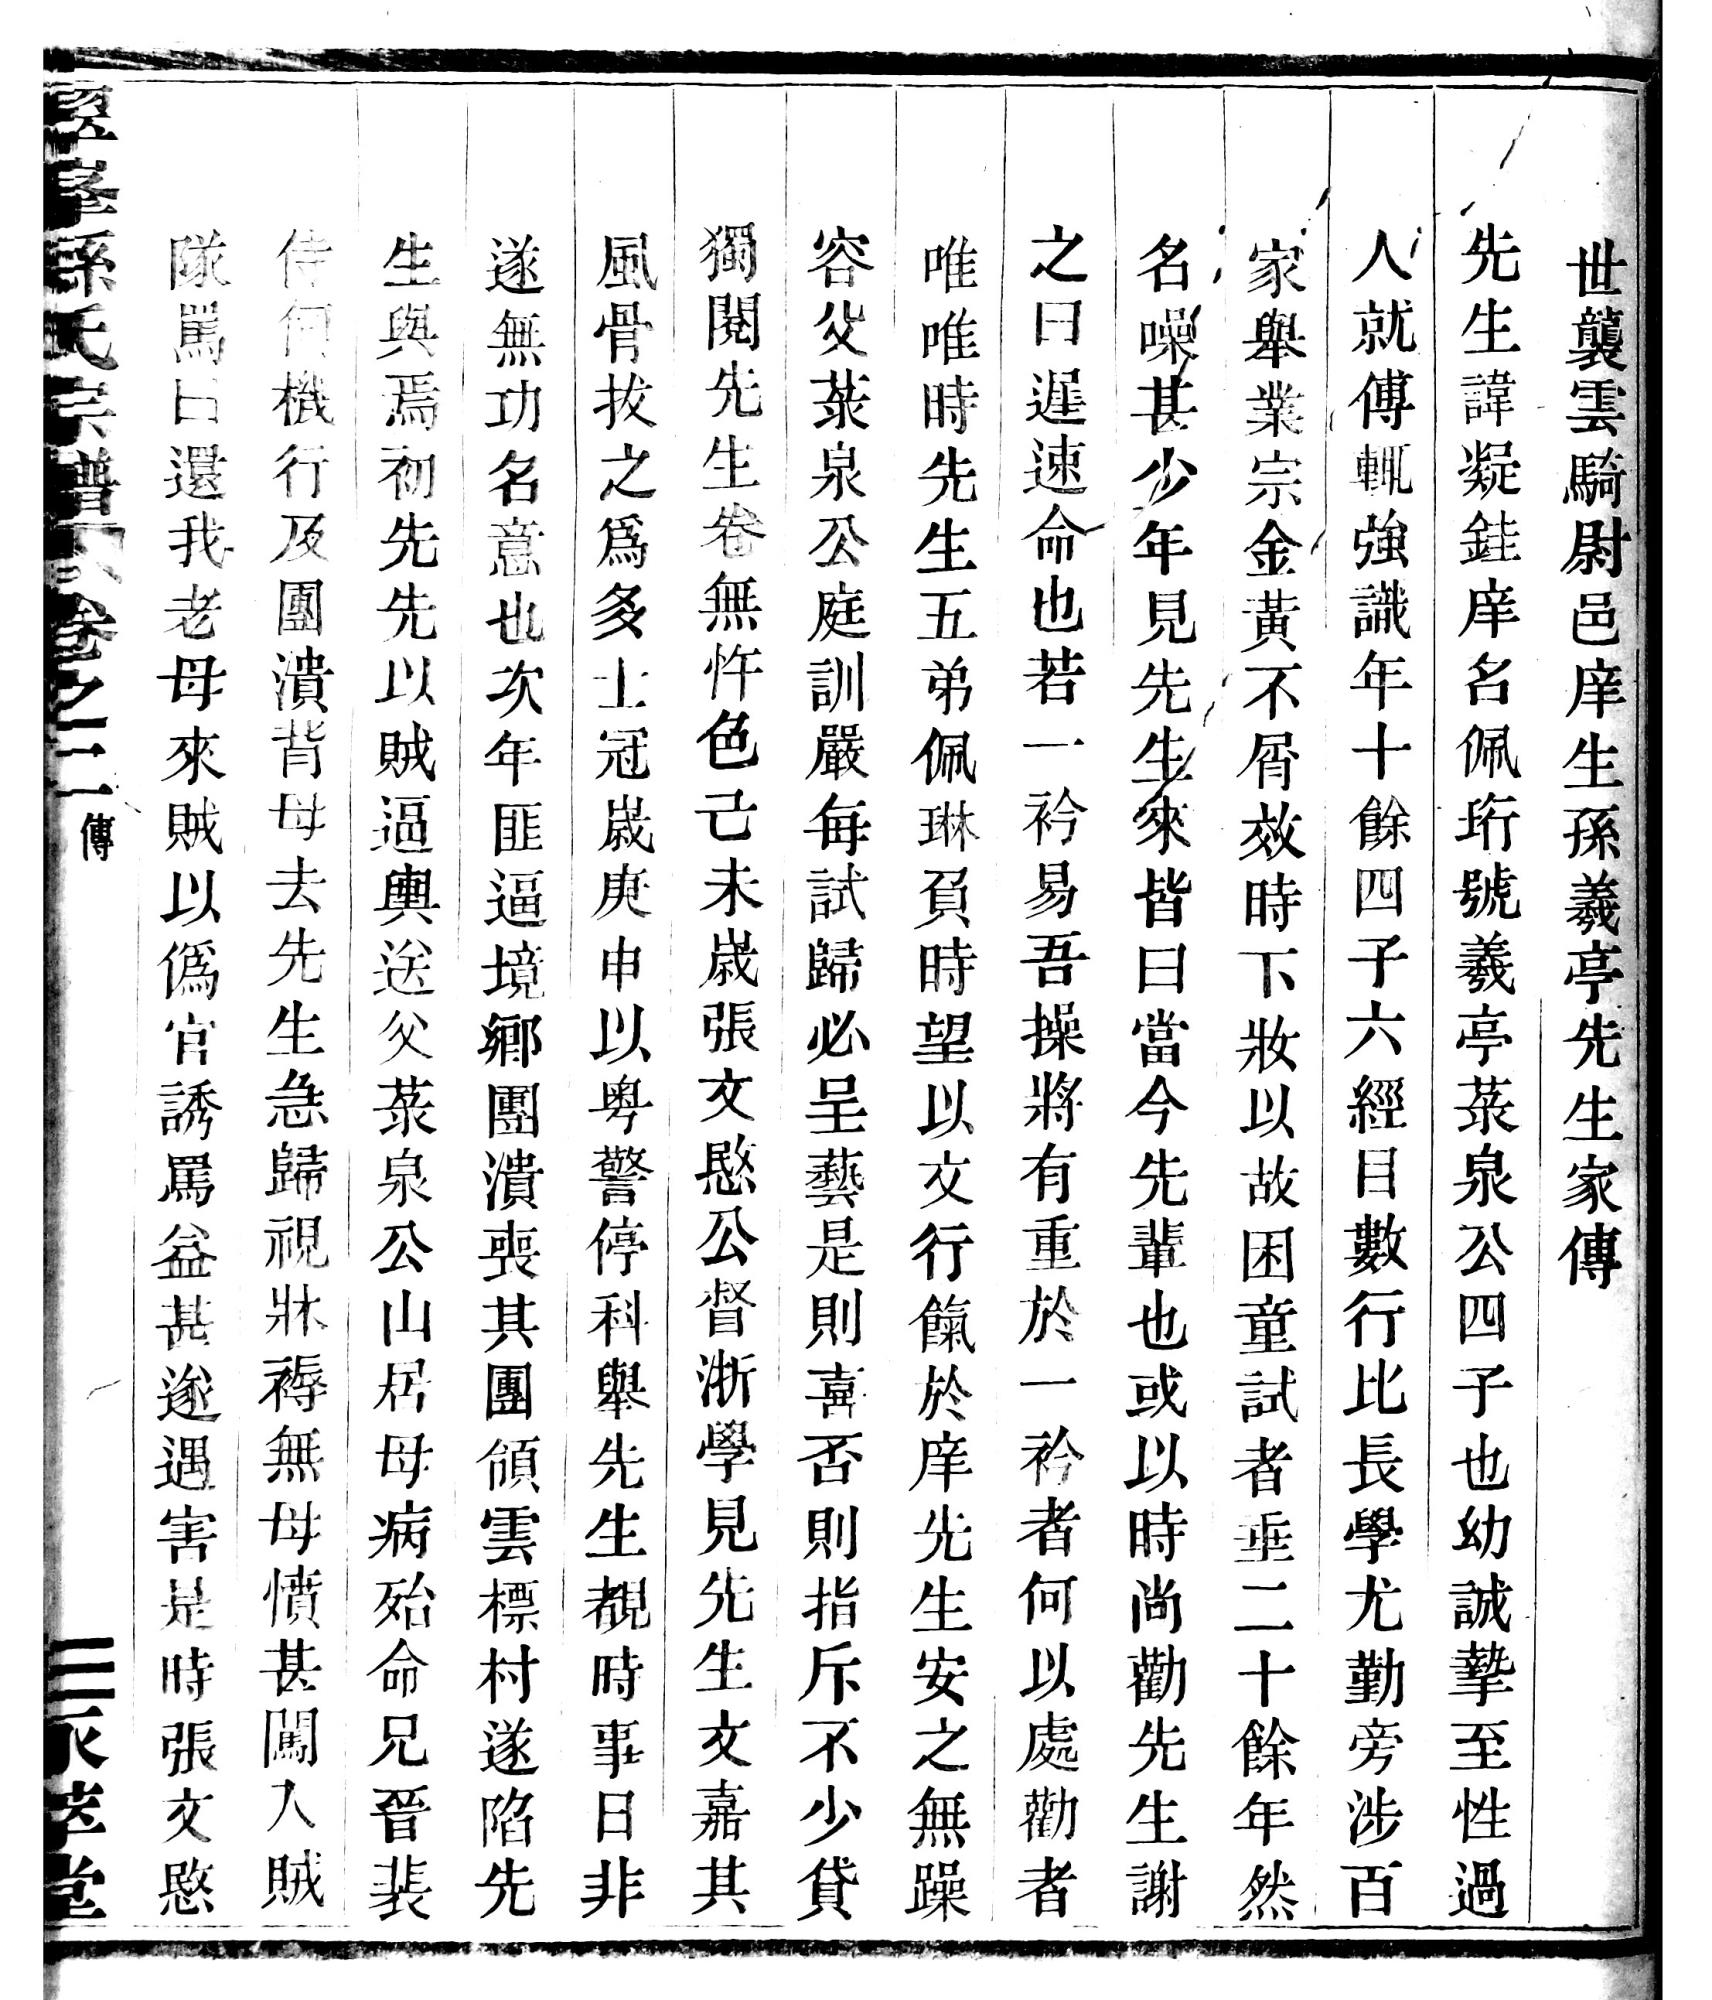 世襲雲騎尉邑庠生孫羲亭先生家傳
先生諱凝銈庠名佩珩號羲亭菉泉公四子也幼誠摯至性過
人就傅輒強識年十餘四子六經目數行比長學尤勤旁涉百
家舉業宗金黃不屑效時下妝以故困童試者垂二十餘年然
名噪甚少年見先生來皆曰當今先輩也或以時尚勸先生謝
之曰遲速命也若一衿易吾操將有重於一衿者何以處勸者
唯唯時先生五弟佩琳負時望以文行餼於庠先生安之無躁
容父菉泉公庭訓嚴每試歸必呈藝是則喜否則指斥不少貸
獨閱先生卷無忤色己未歲張文愍公督浙學見先生文嘉其
風骨拔之爲多士冠歲庚申以粤警停科舉先生覩時事日非
遂無功名意也次年匪逼境鄉團潰喪其團領雲標村遂陷先
生與焉初先先以賊逼輿送父菉泉公山居母病殆命兄晉裴
侍伺機行及團潰背母去先生急歸視牀褥無母憤甚闖入賊
隊罵曰還我老母來賊以僞官誘罵益甚遂遇害是時張文愍
孫氏宗譜 卷之二 傳 三 萃堂